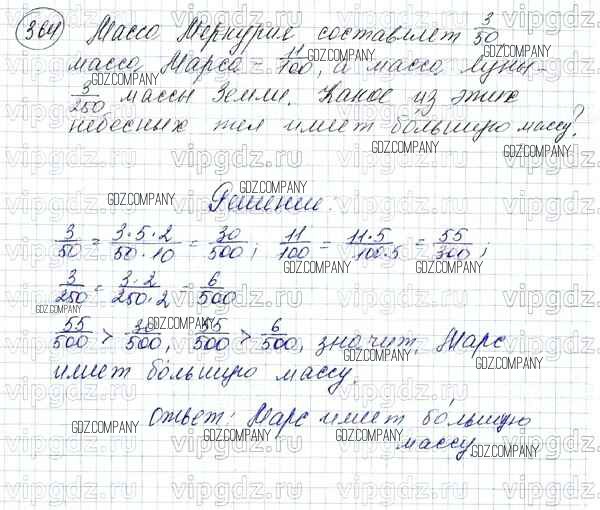 364 Масса Меркурия составляет 3/50
масса Марса - 11/100, а масса Луны -
3/250 массы Земли. Какое из этих
небесных тел имеет бóльшую массу?
Решение:
3/50 = 3·5·2/50·10 = 30/500; 11/100 = 11·5/100·5 = 55/500;
3/250 = 3·2/250·2 = 6/500
55/500 > 30/500, 55/500 > 6/500, значит, Марс
имеет бóльшую массу.
Ответ: Марс имеет бóльшую
массу.